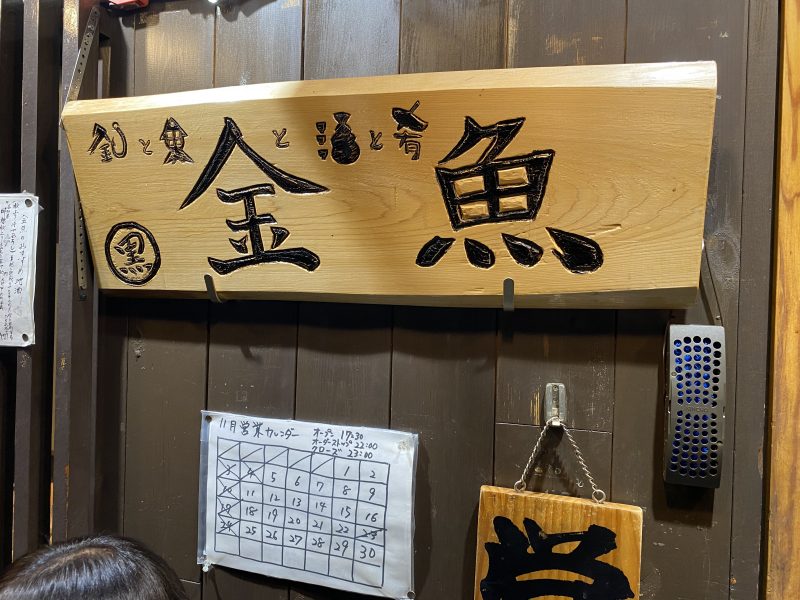 釣と魚と酒と肴
金魚
黒
11月 営業カレンダー
オープン 17:30
オーダーストップ 22:00
クローズ 23:00
1 2
3 4 5 6 7 8 9
10 11 12 13 14 15 16
17 18 19 20 21 22 23
24 25 26 27 28 29 30
営